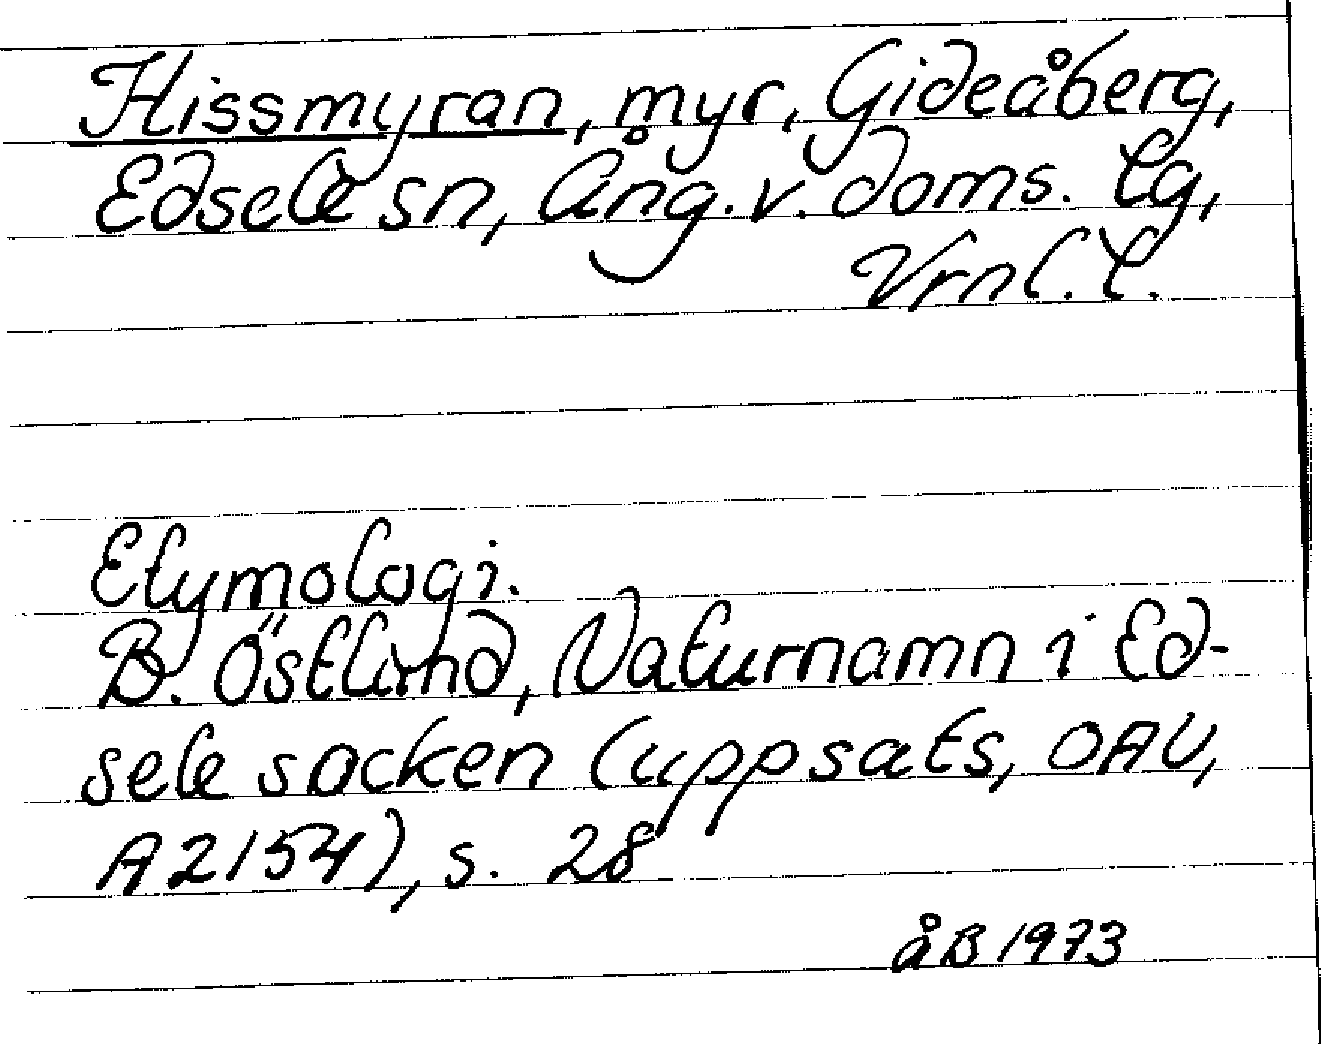 Hissmyran, myr, Gideåberg,
Edsele sn, Ång. v. doms. tg,
Vrnl. l.
Etymologi.
B. Östlund, Naturnamn i Ed-
sele socken (uppsats, OAU,
A2154), s. 28
åB 1973